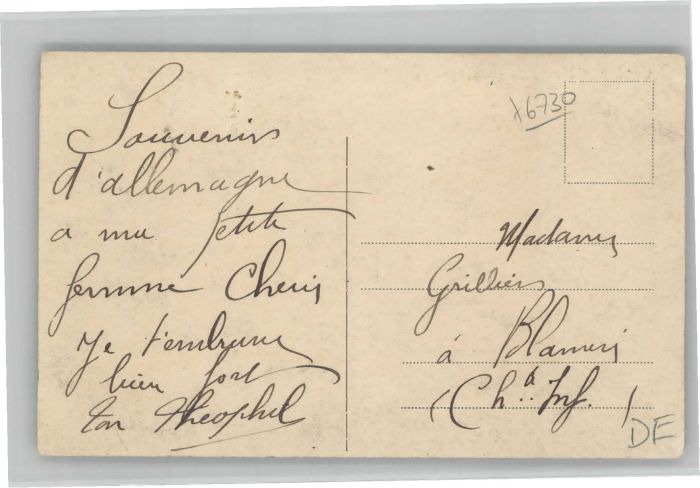 Souvenirs
d'allemagne
a ma petite
femme Cheris
Je t'embrasse
bien fort
ton Theophil
x6730
Madame
Grilliers
à Blameré
(Ch.te Inf.)
DE